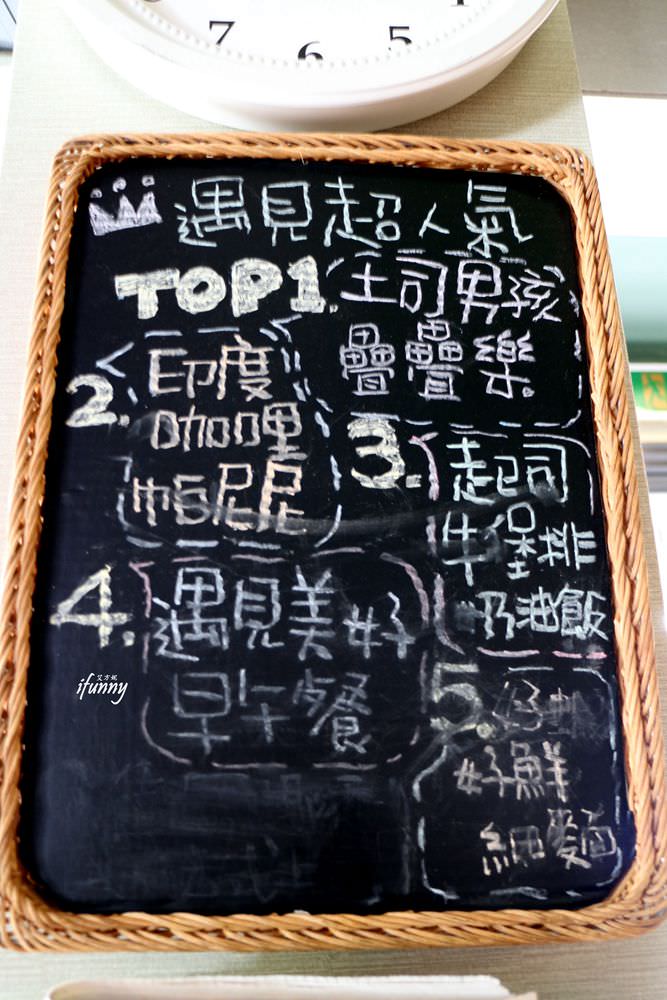 7 6 5
遇見超人氣
TOP1. 土司男孩
疊疊樂。
2. 印度
咖哩
帕尼尼
3. 起司
牛堡排
奶油飯
4. 遇見美好
早午餐
5. 好
好鮮
細麵
艾方妮
ifunny